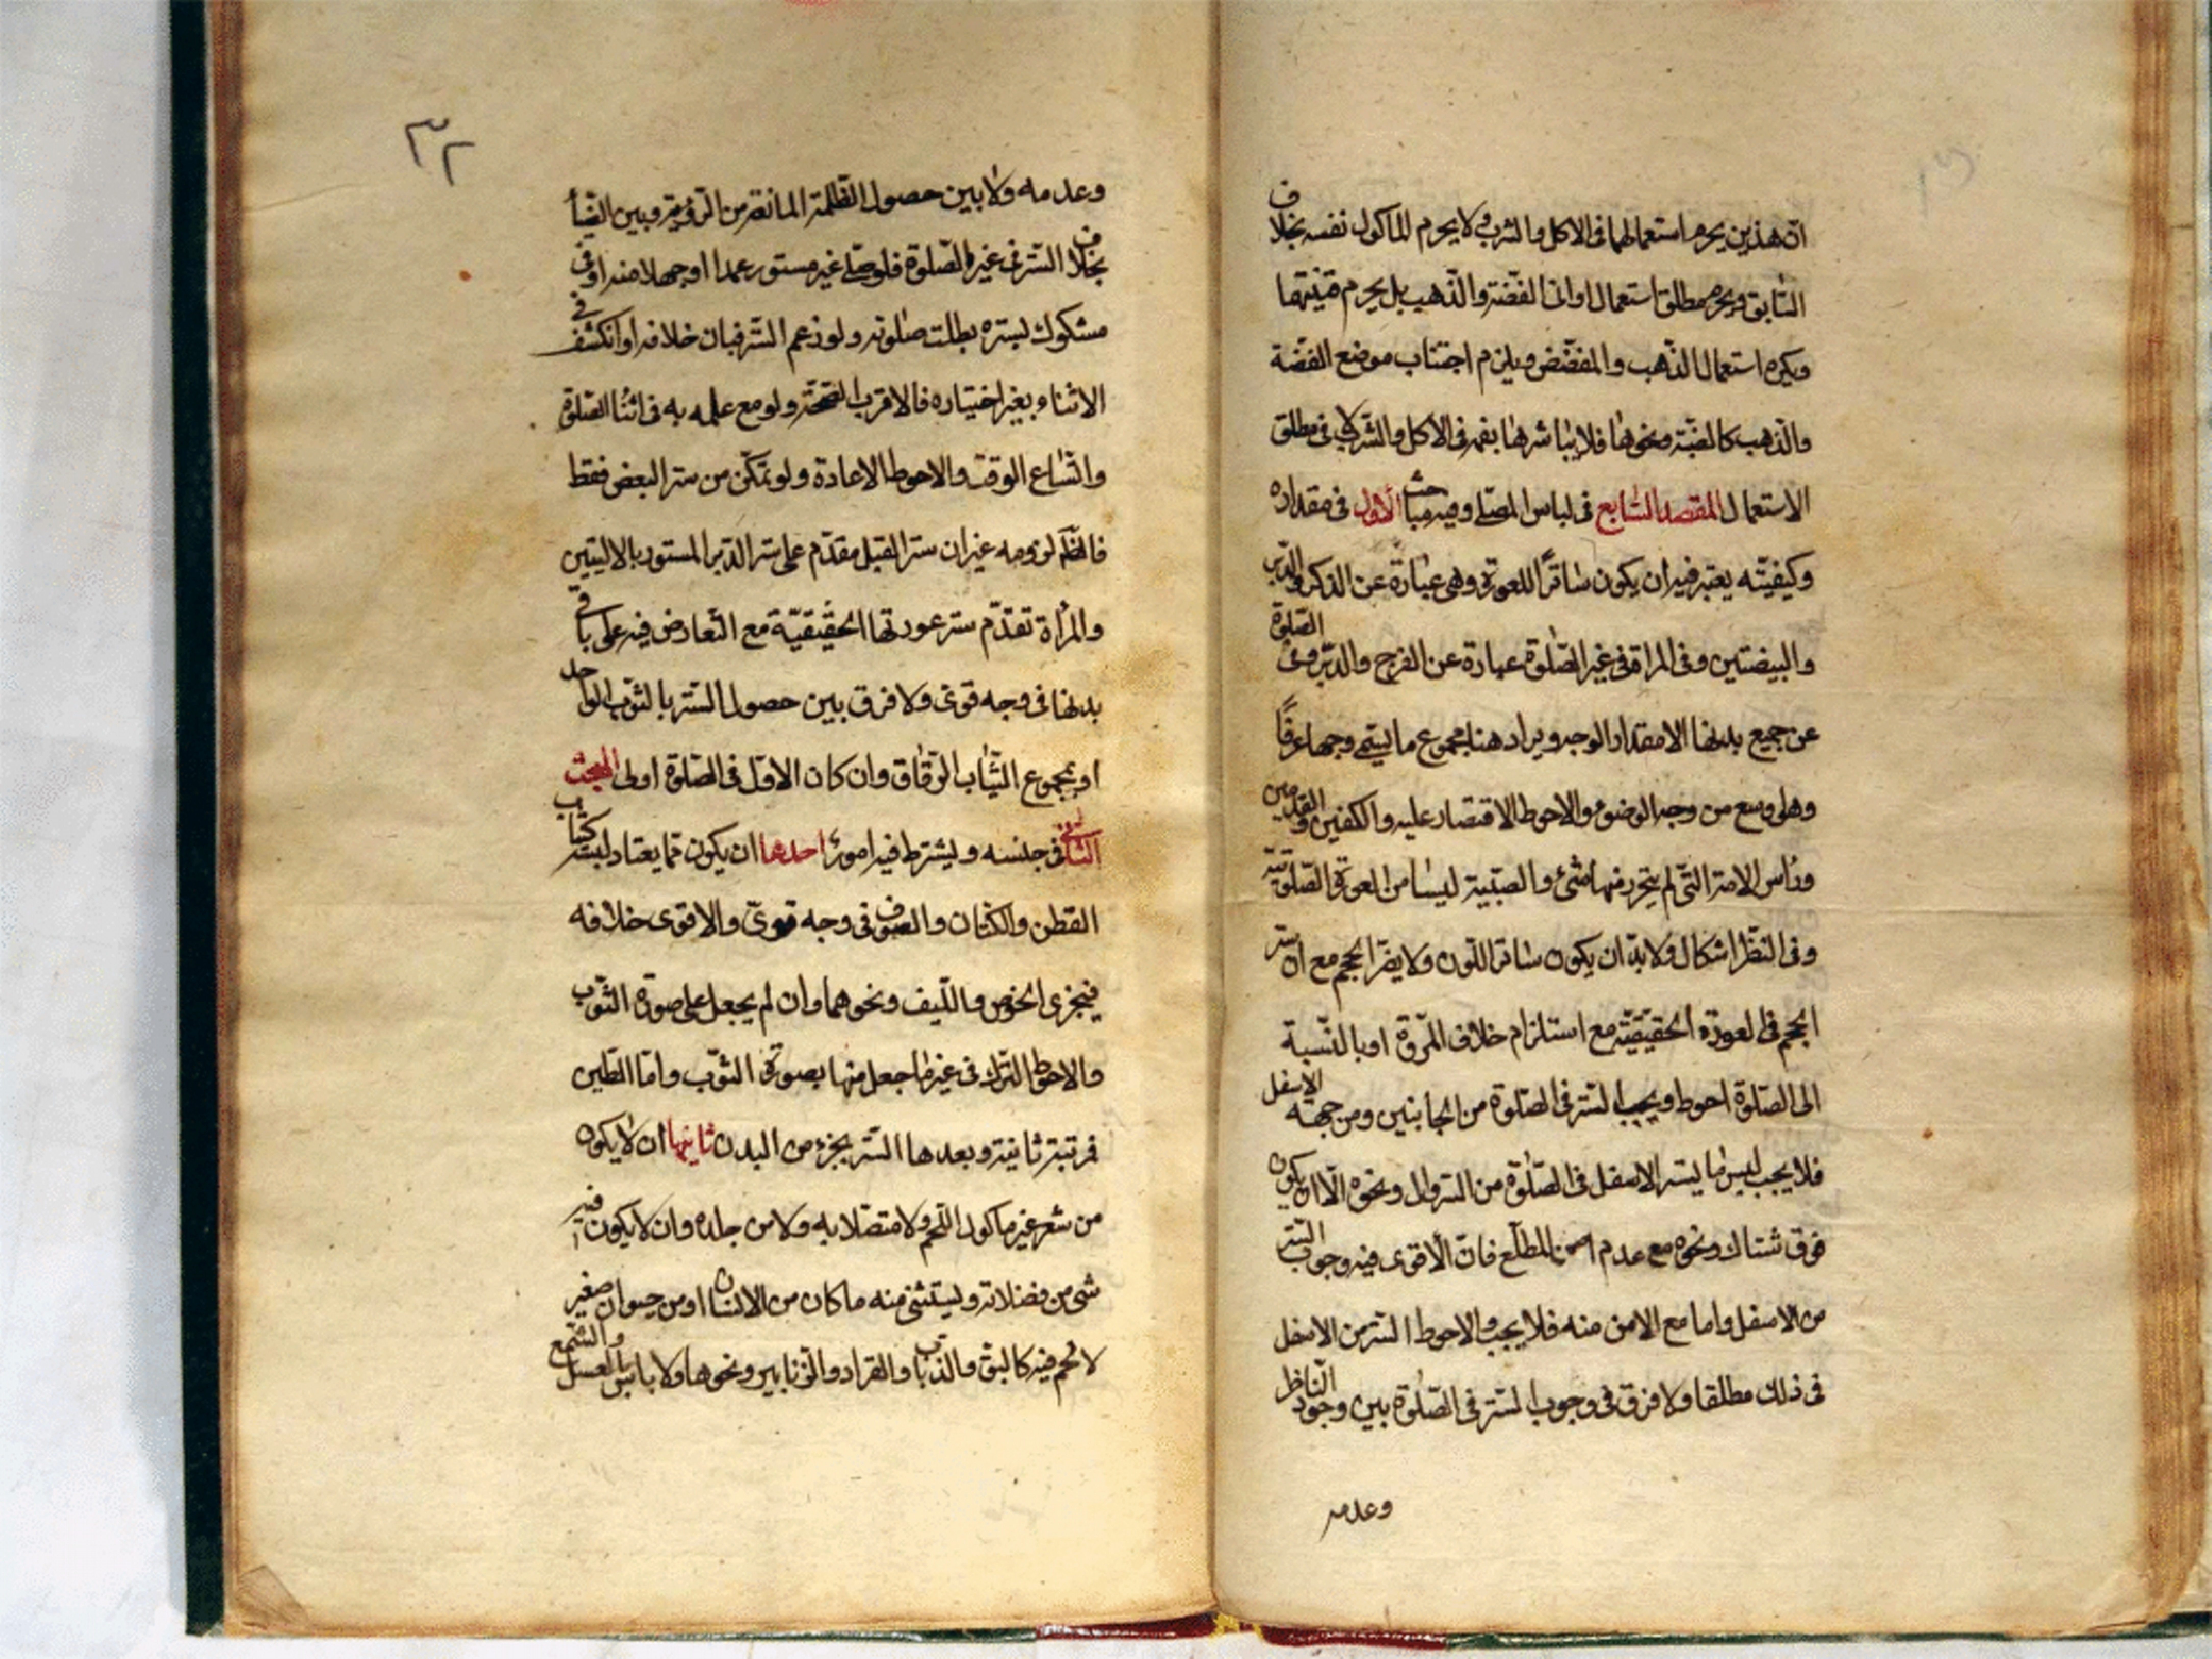 ان هذين يحرم استعمالهما فى الاكل والشرب ولا يحرم الماكول نفسه بخلاف
السابق ويحرم مطلق استعمال اوانى الفضة والذهب بل يحرم قنيتها
ويكره استعمال المذهب والمفضض ويلزم اجتناب موضع الفضة
والذهب كالضبة ونحوها فلا يباشرها بفمه فى الاكل والشرب فى مطلق
الاستعمال المقصد السابع فى لباس المصلى وفيه مباحث الاول فى مقداره
وكيفيته يعتبر فيه ان يكون ساترا للعورة وهى عبارة عن الذكر والدبر
والبيضتين وفى المراة فى غير الصلوة عبارة عن الفرج والدبر وفى الصلوة
عن جميع بدنها الا مقدار الوجه ويراد هنا مجموع ما يسمى وجها عرفا
وهل وسع من وجه الوضوء والاحوط الاقتصار عليه والكفين والقدمين
وراس الامة التى لم يتحرر منها شئ والصبية ليسا من العورة الصلوتية
وفى النظر اشكال ولا بد ان يكون ساتر اللون ولا يضر الحجم مع ان ستر
الحجم فى العورة الحقيقية مع استلزام خلاف المروة او بالنسبة
الى الصلوة احوط ويجب الستر فى الصلوة من الجانبين ومن جهة الاسفل
فلا يجب لبس ما يستر الاسفل فى الصلوة من السروال ونحوه الا ان يكون
فوق شباك ونحوه مع عدم امن المطلع فان الاقوى فيه وجوب الستر
من الاسفل واما مع الامن منه فلا يجب والاحوط الستر من الاسفل
فى ذلك مطلقا ولا فرق فى وجوب الستر فى الصلوة بين وجود الناظر
وعدمه
٣٢
وعدمه ولا بين حصول الظلمة المانعة من الرؤية وبين الضيا
بخلاف الستر فى غير الصلوة فلو صلى غير مستور عمدا او جهلا منه او فى
مشكوك لستره بطلت صلوته ولو زعم الستر فبان خلافه او انكشف فى
الاثناء بغير اختياره فالاقرب الصحة ولو مع علمه به فى اثنا الصلوة
واتساع الوقت والاحوط الاعادة ولو تمكن من ستر البعض فقط
فالظم لزومه غير ان ستر القبل مقدم على ستر الدبر المستور بالاليتين
والمرأة تقدم ستر عورتها الحقيقية مع التعارض فيه على باقى
بدنها فى وجه قوى ولا فرق بين حصول الستر بالثوب الواحد
او بمجموع الثياب الرقاق وان كان الاول فى الصلوة اولى المبحث
الثانى فى جنسه ويشترط فيه امور احدها ان يكون مما يعتاد لبسه كثياب
القطن والكتان والصوف فى وجه قوى والاقوى خلافه
فيجزى الخوص والليف ونحوهما وان لم يجعل على صورة الثوب
والاحوط الترك فى غير ما جعل منها بصورة الثوب واما الطين
فمرتبته ثانية وبعدها الستر بجزء من البدن ثانيها ان لا يكون
من شعر غير ماكول اللحم ولا متصلا به ولا من جلده وان لا يكون فيه
شى من فضلاته ويستثنى منه ما كان من الانسان او من حيوان صغير
لا لحم فيه كالبق والذباب والقراد والزنابير ونحوها ولا باس بالعسل والشمع